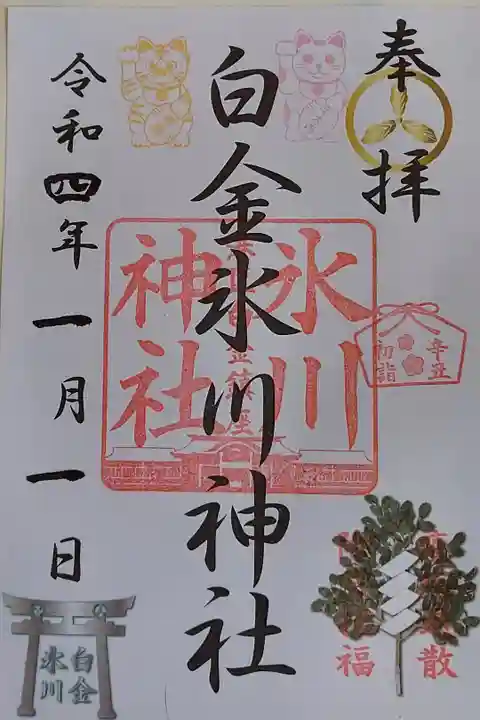 奉拝
白金氷川神社
令和四年一月一日
氷川
神社
金鎮座
辛丑
初詣
散
福
白金
氷川